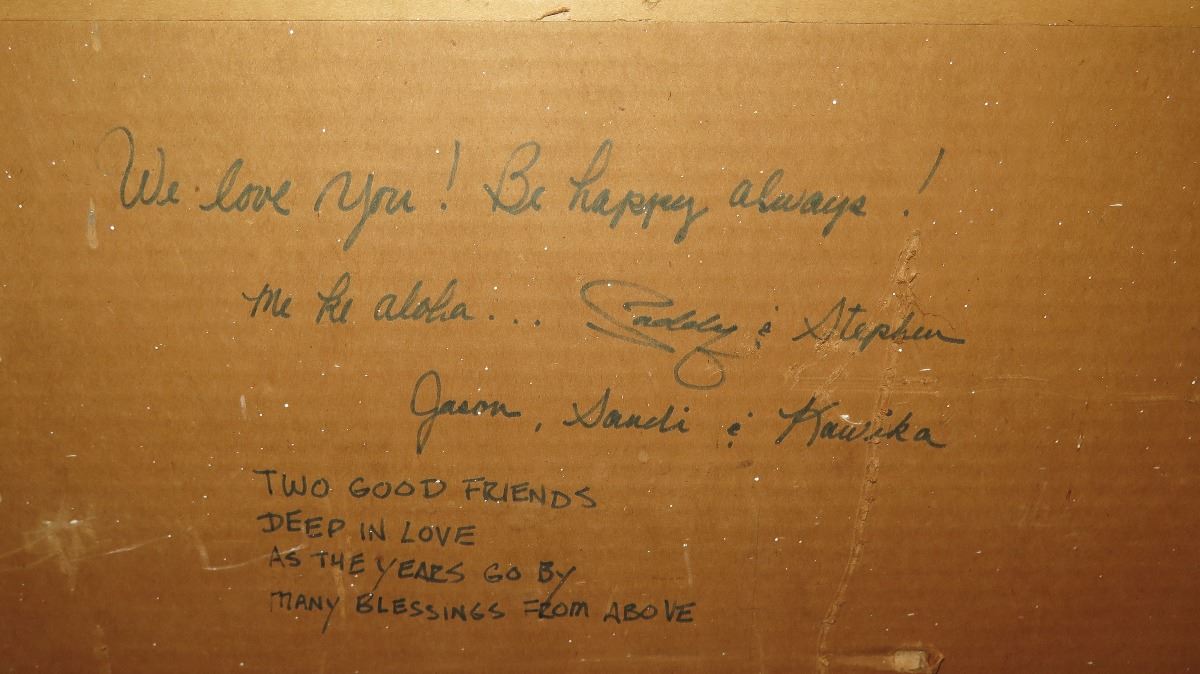 We love you! Be happy always!
me ke aloha... & Stephen
Jason, Sandi & Kawika
TWO GOOD FRIENDS
DEEP IN LOVE
AS THE YEARS GO BY
MANY BLESSINGS FROM ABOVE